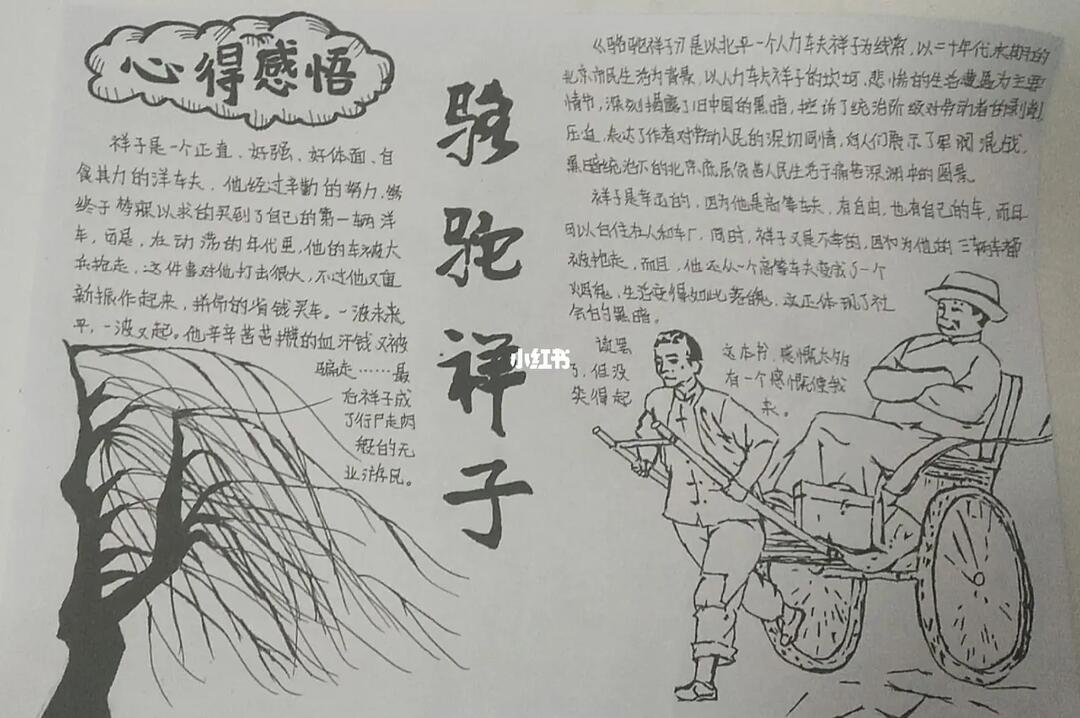 心得感悟
祥子是一个正直、好强、好体面、自
食其力的洋车夫，他经过辛勤的努力，
终于梦寐以求的买到了自己的第一辆洋
车，可是，在动荡的年代里，他的车被大
兵抢走，这件事对他打击很大，不过他又重
新振作起来，拼命的省钱买车。一波未来
平，一波又起。他辛辛苦苦攒的血汗钱又被
骗走……最
后祥子成
了行尸走肉
般的无
业游民。
骆驼祥子
《骆驼祥子》是以北平一个人力车夫祥子为线索，以二十年代末期的
北京市民生活为背景，以人力车夫祥子的坎坷、悲惨的生活遭遇为主要
情节，深刻揭露了旧中国的黑暗，控诉了统治阶级对劳动者的剥削
压迫，表达了作者对劳动人民的深切同情，向人们展示了军阀混战，
黑暗统治下的北京底层贫苦人民生活于痛苦深渊中的图景。
祥子是幸运的，因为他是高等车夫，有自由，也有自己的车，而且
可以白住在人和车厂，同时，祥子又是不幸的，因为他的三辆车都
被抢走，而且，他还从一个高等车夫变成了一个
烟鬼，生活变得如此落魄，这正体现了社
会的黑暗。
读罢 这本书，感慨
，但没 有一个感慨使我
笑得起 来。
小红书